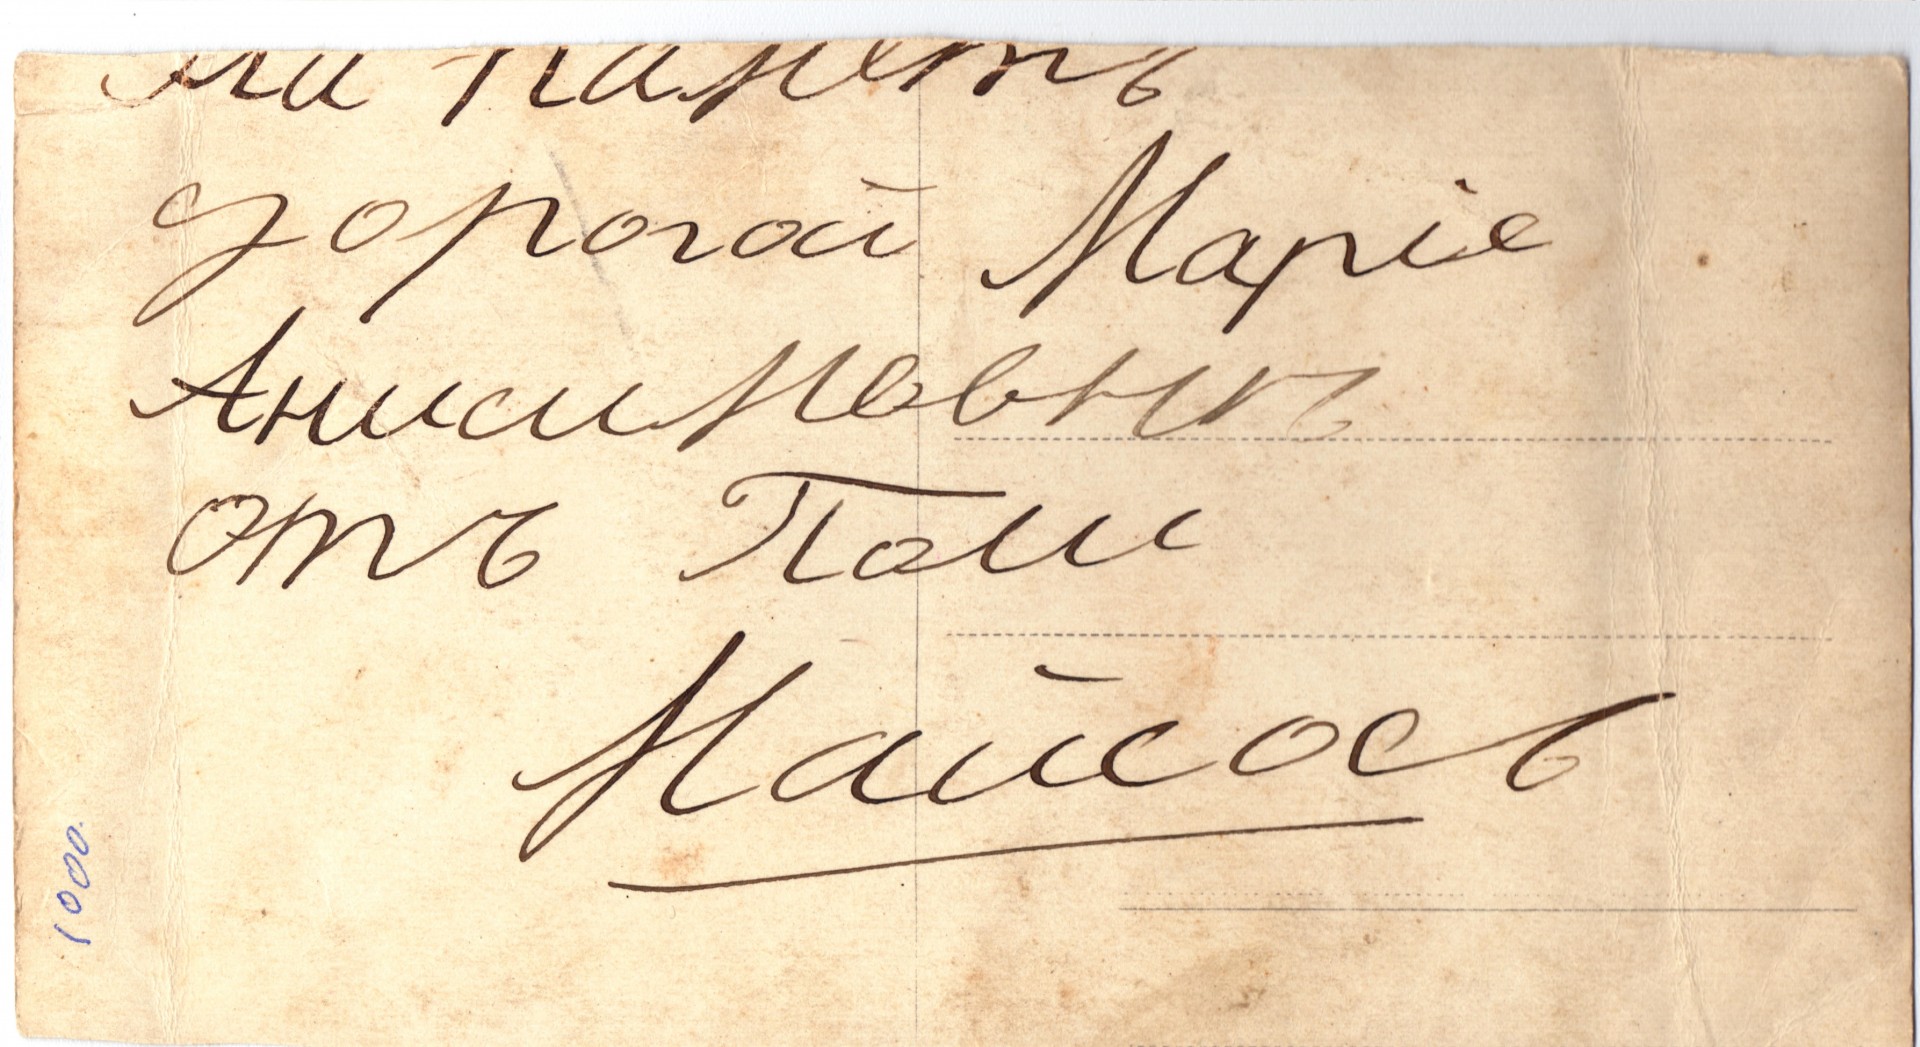 На паметъ
дорогой Маріе
Анисимовнѣ
отъ Поли
Майсосъ
1000.